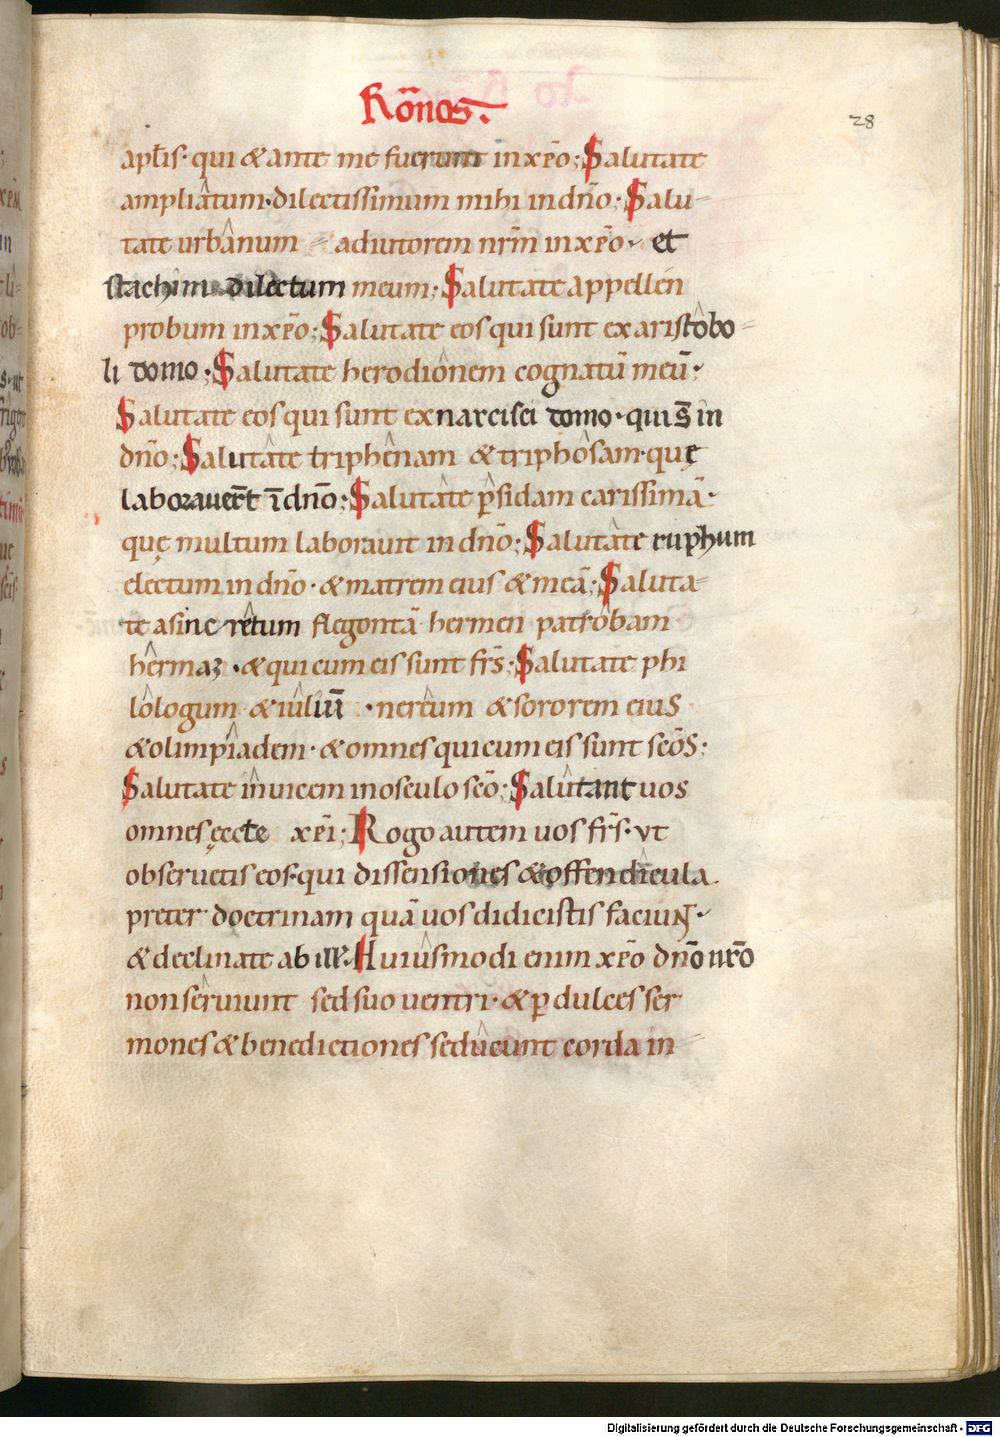 Rõnos.
28
apƚis· qui & ante me fuerunt in xp̄o; Salutate
ampliâtum· dilectissimum mihi in dn̄o; Salu-
tate urbânum adiutorem nr̄m in xp̄o· et
stachim dilectum meum; Salutate appellen
probum in xp̄o; Salutate eos qui sunt ex aristôbo-
li domo·; Salutate herodiônem cognatū meū·
Salutate eos qui sunt ex narcisci domo· qui s̄ in
dn̄o; Salutâte triphênam & triphôsam· quę
laborauer̄t ī dn̄o; Salutâte p̄sidam carissimā·
quę multum laborauit in dn̄o; Salutâte ruphum
electum in dn̄o· & matrem eius & meā; Saluta-
te asincrêtum flegontā hermen patrôbam
hêrmaʒ · & qui cum eis sunt fr̄s; Salutate phi
lôlogum & iûliū · nerêum & sororem eius
& olimpîadem· & omnes qui cum eis sunt sc̄os;
Salutate înuicem in osculo sc̄o; Salûtant uos
omnes ęccƚe xp̄i; Rogo autem uos fr̄s· vt
obseruetis eos· qui dissensiones & offendîcula
preter doctrinam quā uos didicistis faciuɴᴛ·
& declinate ab ill̄· Huiûsmodi enim xp̄o dn̄o nr̄o
non sêruiunt sed suo uentri· & ꝑ dulces ser
mones & benedictiones sedûcunt corda in-
Digitalisierung gefördert durch die Deutsche Forschungsgemeinschaft - DFG